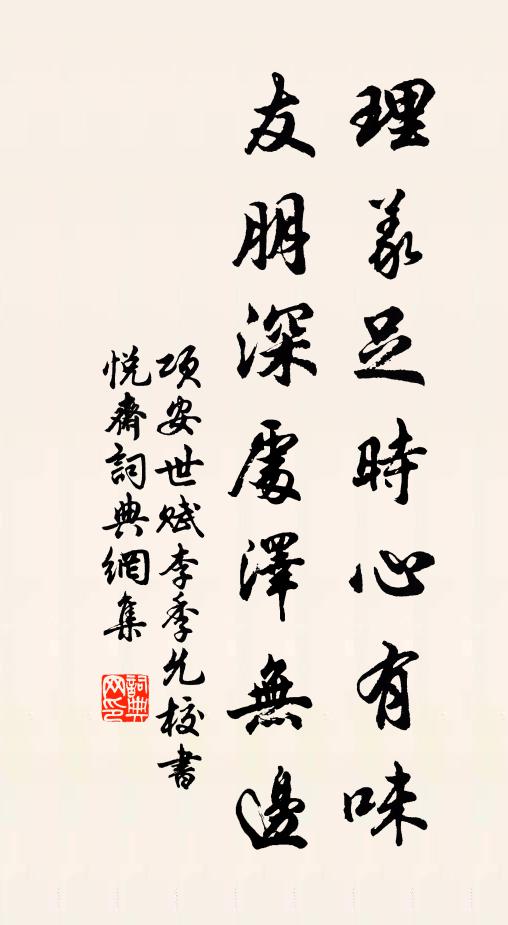 理義足時心有味
友朋深處澤無邊
項安世賦李季允校書
悅齋詞典網集
詞典網印